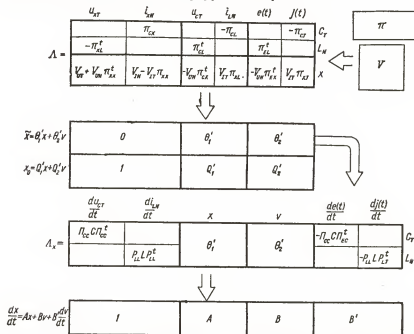 u_XT i_XN u_CT i_LN e(t) j(t)
π_CX -π_CL -π_CJ C_T
π
Λ = -π_XL^t π_CL^t π_EL^t L_N
V_UT + V_UN π_XX^t V_IN - V_IT π_XX -V_UN π_CX^t V_IT π_XL -V_UN π_EX^t V_IT π_XJ X
V
x̃=θ_1'x+θ_2'v 0 θ_1' θ_2'
x_0=Q_1'x+Q_2'v 1 Q_1' Q_2'
du_CT/dt di_LN/dt x v de(t)/dt dj(t)/dt
Λ_x = Π_CC CΠ_CC^t θ_1' θ_2' -Π_CC CΠ_EC^t C_T
P_LL LP_LL^t -P_LL LP_LJ^t L_N
dx/dt=Ax+Bv+B'dv/dt 1 A B B'